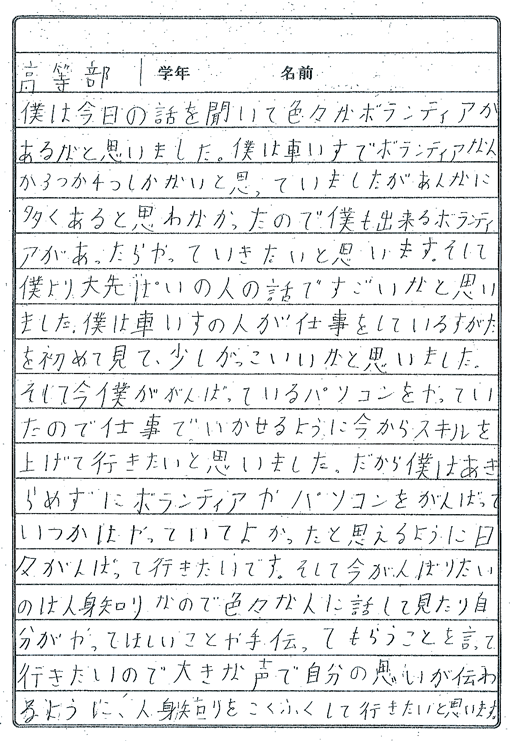 高等部 学年 名前
僕は今日の話を聞いて色々なボランティアが
あるなと思いました。僕は車いすでボランティアなん
か3つか4つしかないと思っていましたがあんなに
多くあると思わなかったので僕も出来るボランティ
アがあったらやっていきたいと思います。そして
僕より大先ぱいの人の話ですごいなと思い
ました。僕は車いすの人が仕事をしているすがた
を初めて見て、少しかっこいいなと思いました。
そして今僕ががんばっているパソコンをやってい
たので仕事でいかせるように今からスキルを
上げて行きたいと思いました。だから僕はあき
らめずにボランティアやパソコンをがんばって
いつかはやっていてよかったと思えるように日
々がんばって行きたいです。そして今がんばりたい
のは人身知りなので色々な人に話して見たり自
分がやってほしいことや手伝ってもらうことを言って
行きたいので大きな声で自分の思いが伝わ
るように、人身知りをこくふくして行きたいと思います。